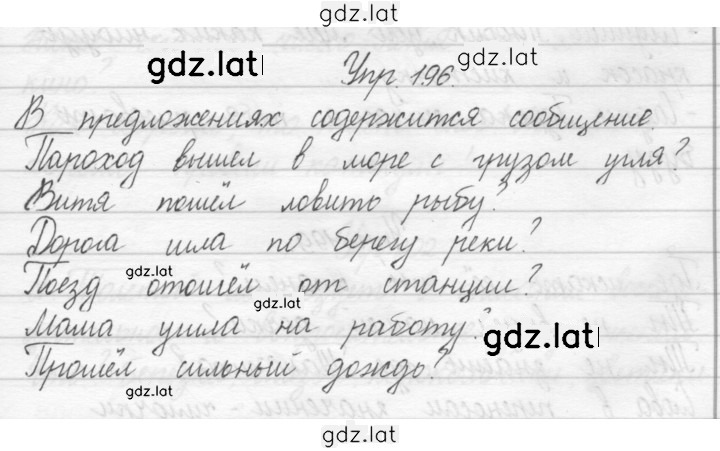 gdz.lat
gdz.lat
gdz.lat
Упр. 196.
В предложениях содержится сообщение
Пароход вышел в море с грузом угля?
Витя пошёл ловить рыбу?
Дорога шла по берегу реки?
gdz.lat
Поезд отошёл от станции?
gdz.lat
Мама ушла на работу?
gdz.lat
Прошёл сильный дождь?
gdz.lat
gdz.lat